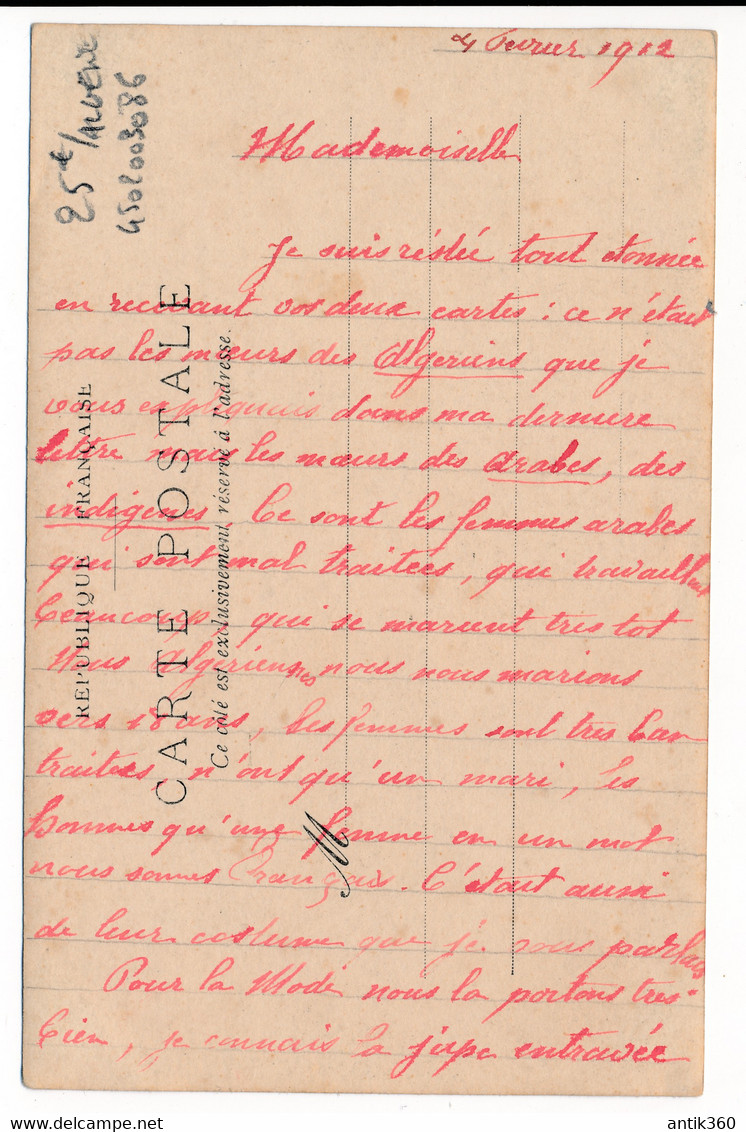 4 Fevrier 1912
Mademoiselle
Je suis réstée tout etonnée
en recevant vos deux cartes : ce n'était
pas les mœurs des Algeriens que je
vous expliquais dans ma derniere
lettre mais les mœurs des arabes, des
indigènes. Ce sont les femmes arabes
qui sont mal traitees, qui travaillent
beaucoup qui se marient tres tot
Nous Algériennes nous nous marions
vers 18 ans, Les femmes sont tres bien
traitees n'ont qu'un mari, les
hommes qu'une femme en un mot
nous somes Français. C'était aussi
de leur costume que je vous parlais
Pour la Mode nous la portons tres
bien, je connais la jupe entravée
REPUBLIQUE FRANÇAISE
CARTE POSTALE
Ce côté est exclusivement réservé à l'adresse.
M
25
antik360